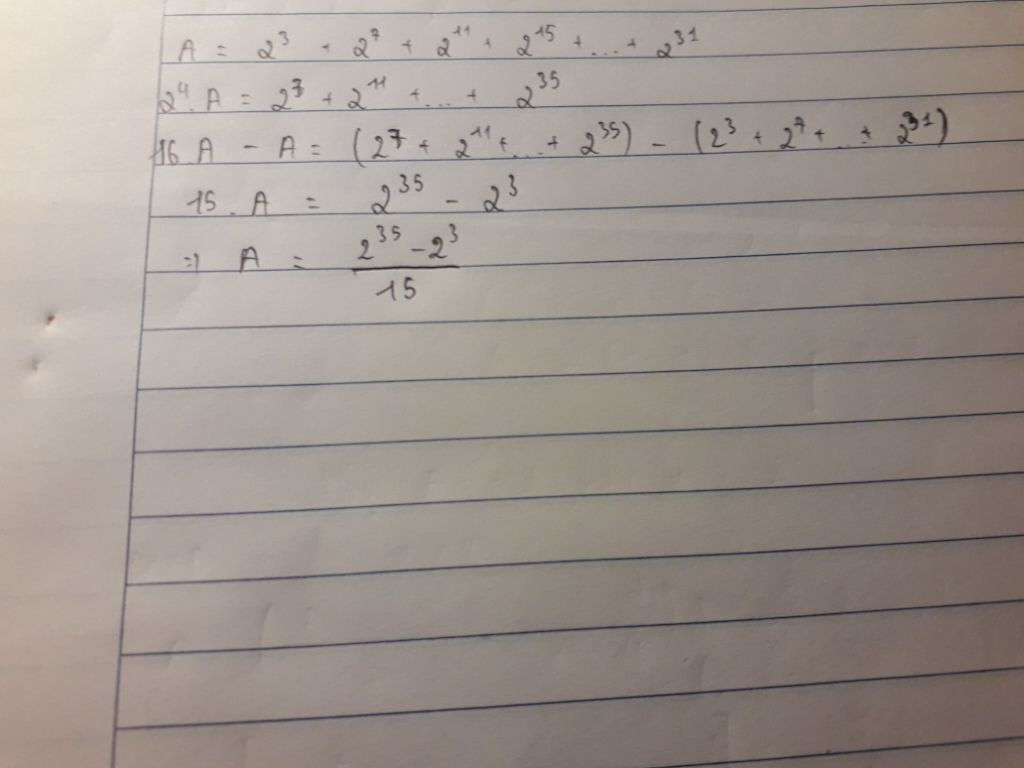 A = 2³ + 2⁷ + 2¹¹ + 2¹⁵ + ... + 2³¹
2⁴. A = 2⁷ + 2¹¹ + ... + 2³⁵
16. A - A = (2⁷ + 2¹¹ + ... + 2³⁵) - (2³ + 2⁷ + ... + 2³¹)
15. A = 2³⁵ - 2³
=> A = 2³⁵ - 2³
15